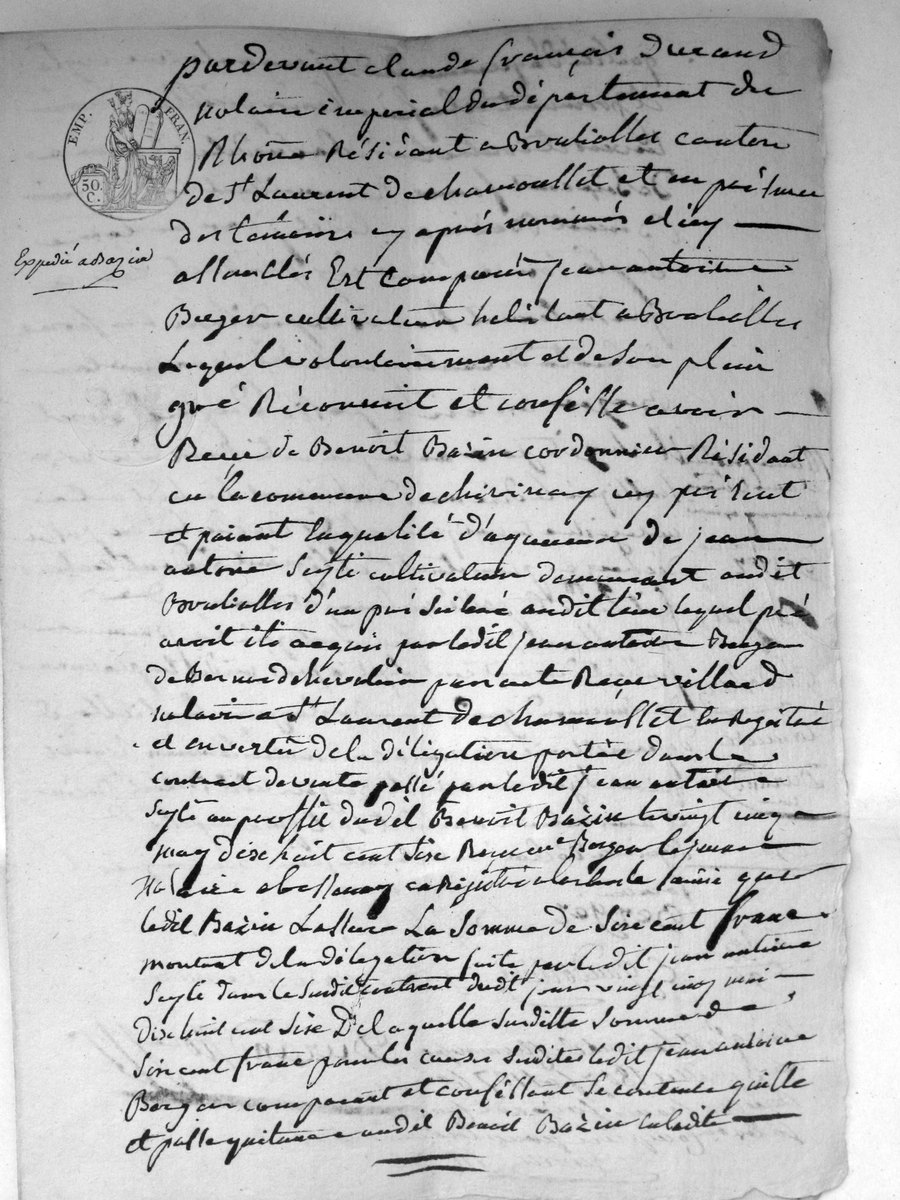 pardevant claude françois durand
EMP. FRAN.
50.
C.
notaire imperial du département du
Rhône Résidant a Brulliolles canton
de St. Laurent de chamousset et en présence
des témoins cy après nommés et icy
Expedié a Bazin
assemblés Est Comparu jean antoine
Berger cultivateur habitant a Brulliolles
Lequel volontairement et de son plein
gré Réconnoit et confésse avoir
Reçu de Benoit Bazin cordonnier Résidant
en la commune de chivinay icy présent
et paiant laqualité d'aquereur de jean
antoine Seyte cultivateur demeurant audit
Brulliolles d'un pré situé audit lieu lequel pré
avoit été acquis par ledit jean antoine Berger
de Bernard chevalier par acte Reçu villard
notaire a St. Laurent de chamousset Enregistré
et en vertu de la délégation portée dans le
contract de vente passé par ledit jean antoine
Seyte au proffit dudit Benoit Bazin le vingt cinq
may dix huit cent Sixe Reçu me Berger le jeune
Notaire a bessenay enregistré
ledit Bazin La somme de Sixe cent franc
montant de la délégation faite par ledit jean antoine
Seyte dans le susdit contract dudit jour vingt cinq mai
dix huit cent Sixe De laquelle susditte Somme de
Sixe cent franc pour les causes Susdites ledit jean antoine
Berger comparant et conféssant Se contente quitte
et passe quitance audit Benoit Bazin